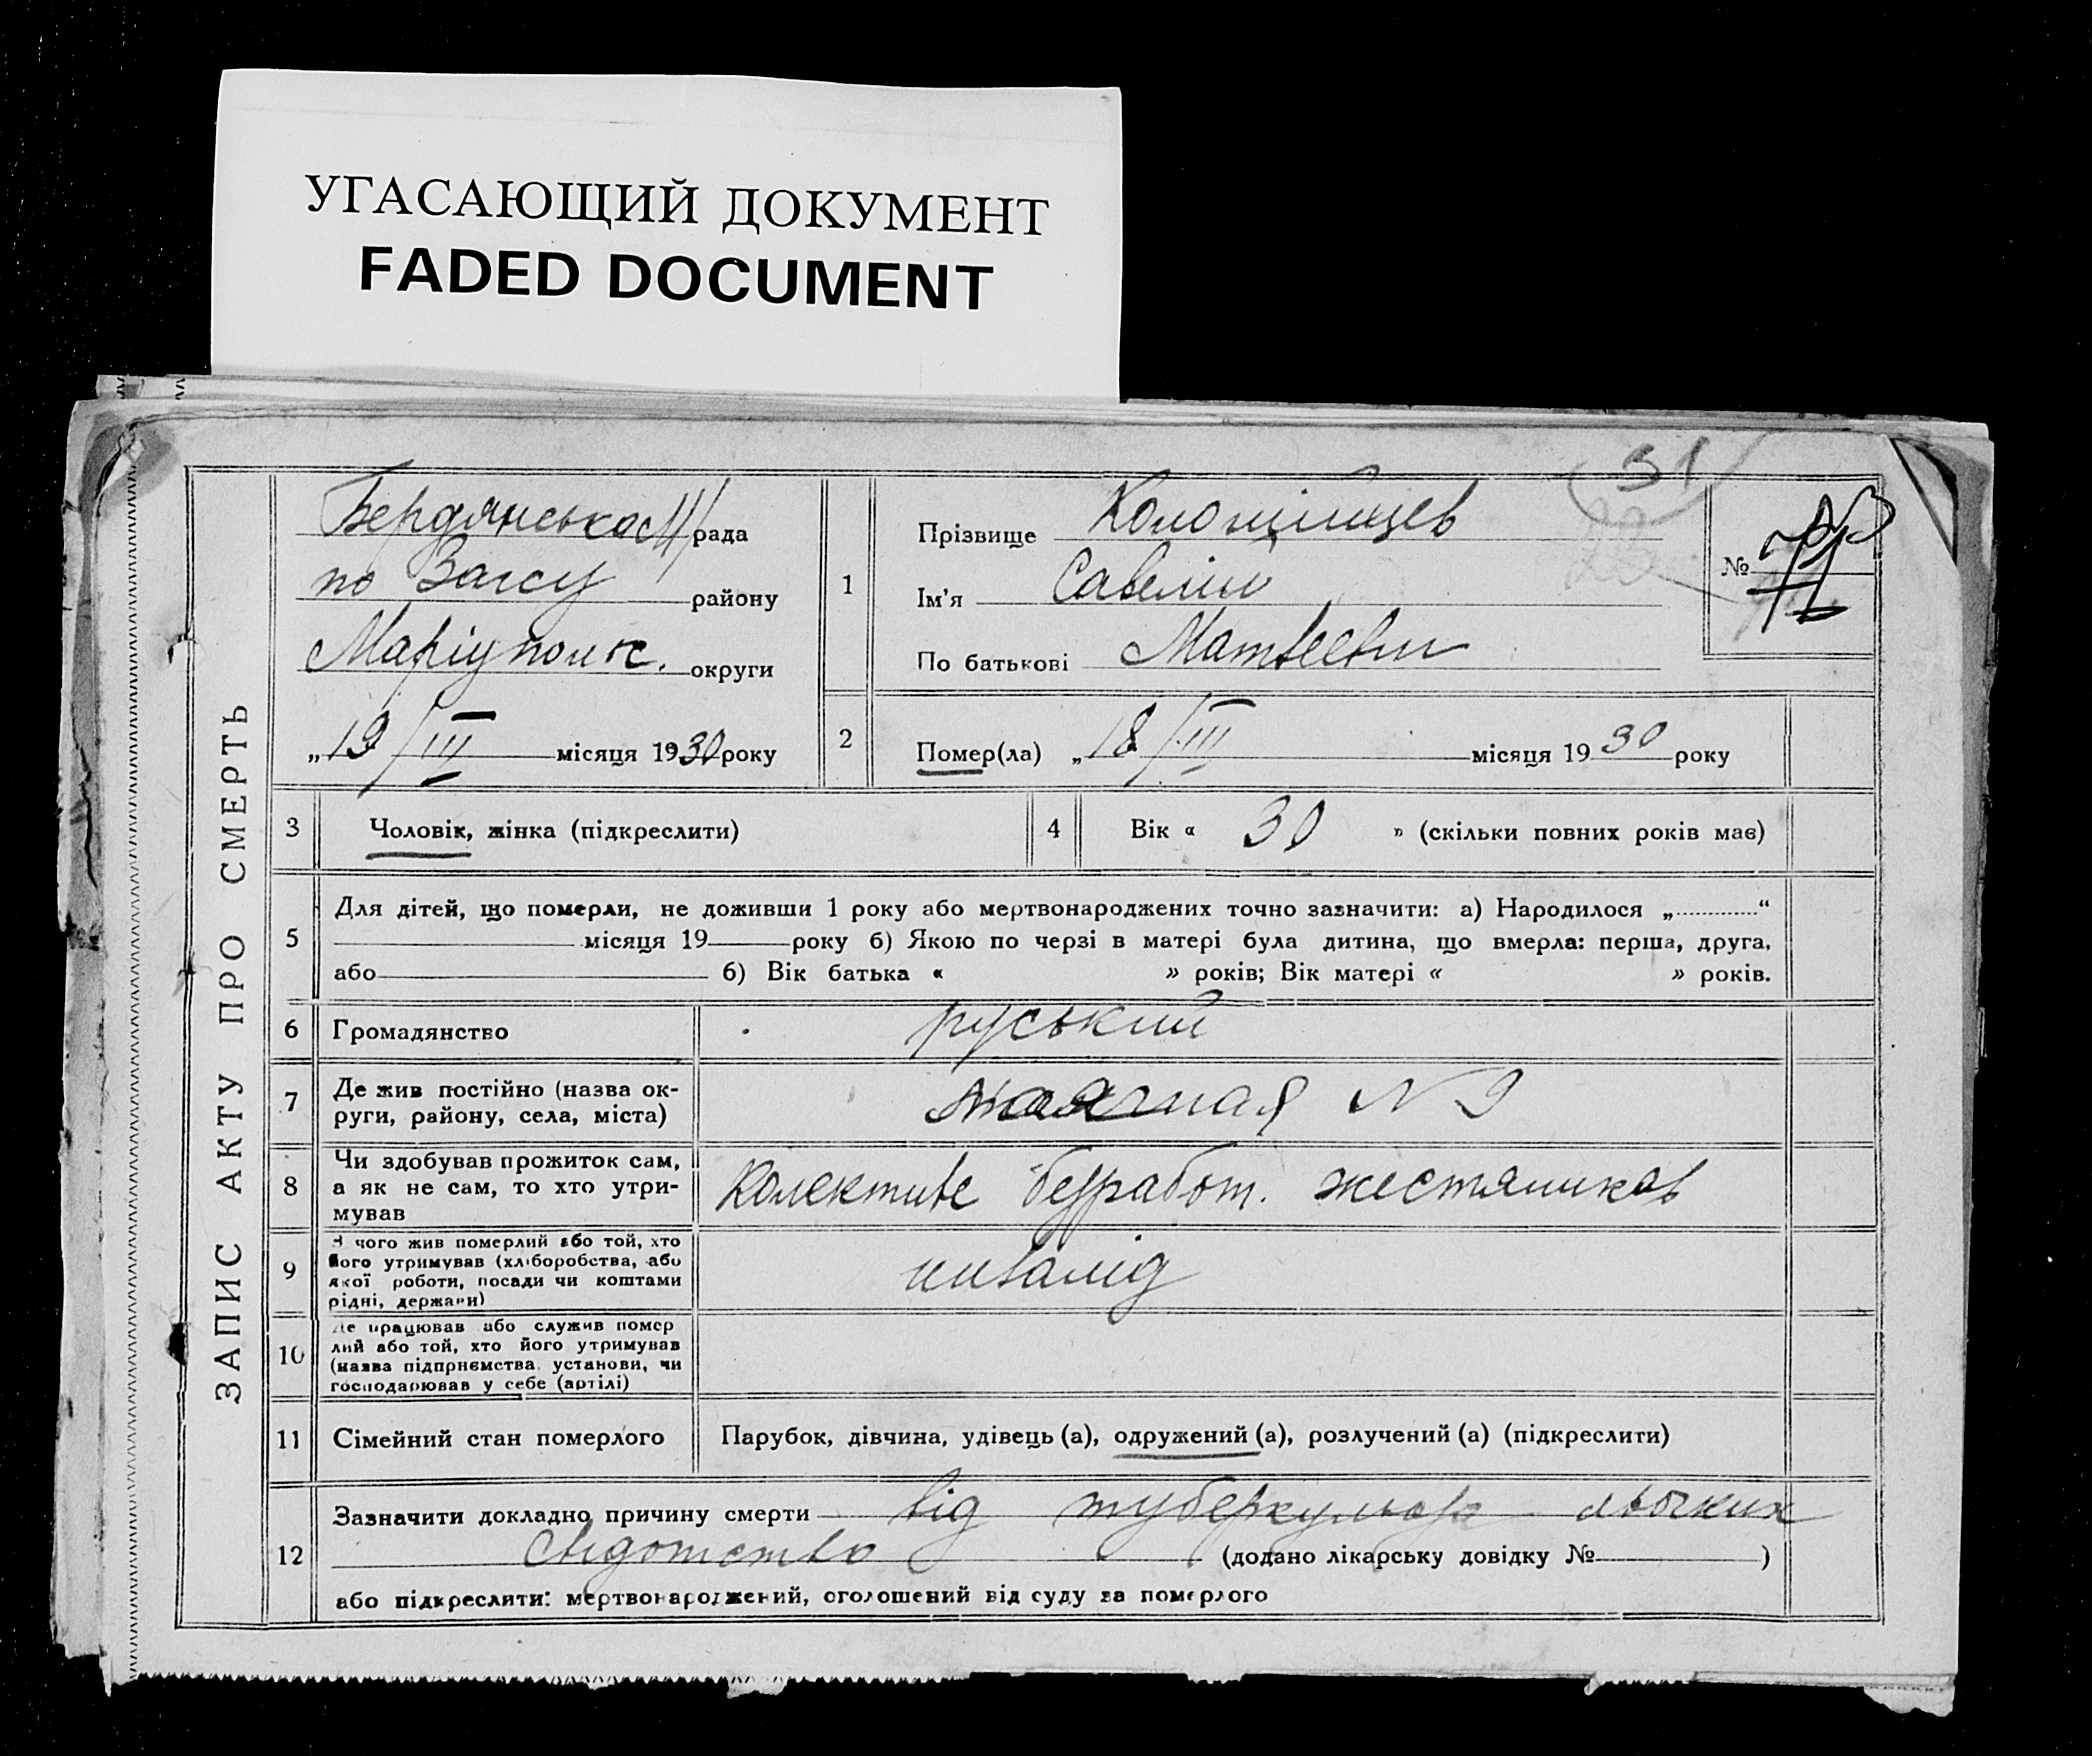 УГАСАЮЩИЙ ДОКУМЕНТ
FADED DOCUMENT
31
ЗАПИС АКТУ ПРО СМЕРТЬ
Бердянська М/рада
по Загсу району
Маріупольс. округи
„19/III місяця 1930 року
1
Прізвище Коломійцев
Ім'я Савелій
По батькові Матвеевич
№
2
Помер(ла) „18/III місяця 1930 року
3 Чоловік, жінка (підкреслити)
4 Вік « 30 » (скільки повних років має)
5 Для дітей, що померли, не доживши 1 року або мертвонароджених точно зазначити: а) Народилося „ “
місяця 19 року б) Якою по черзі в матері була дитина, що вмерла: перша, друга,
або б) Вік батька « » років; Вік матері « » років.
6 Громадянство руський
7 Де жив постійно (назва ок-
руги, району, села, міста) N 9
8 Чи здобував прожиток сам,
а як не сам, то хто утри-
мував
Колективе безработ. жестяников
9 З чого жив померлий або той, хто
його утримував (хліборобства, або
якої роботи, посади чи коштами
рідні, держави)
инвалід
10 Де працював або служив помер
лий або той, хто його утримував
(назва підприємства, установи, чи
господарював у себе (артілі)
11 Сімейний стан померлого Парубок, дівчина, удівець (а), одружений (а), розлучений (а) (підкреслити)
12 Зазначити докладно причину смерти від туберкульоза
(додано лікарську довідку № )
або підкреслити: мертвонароджений, оголошений від суду за померлого